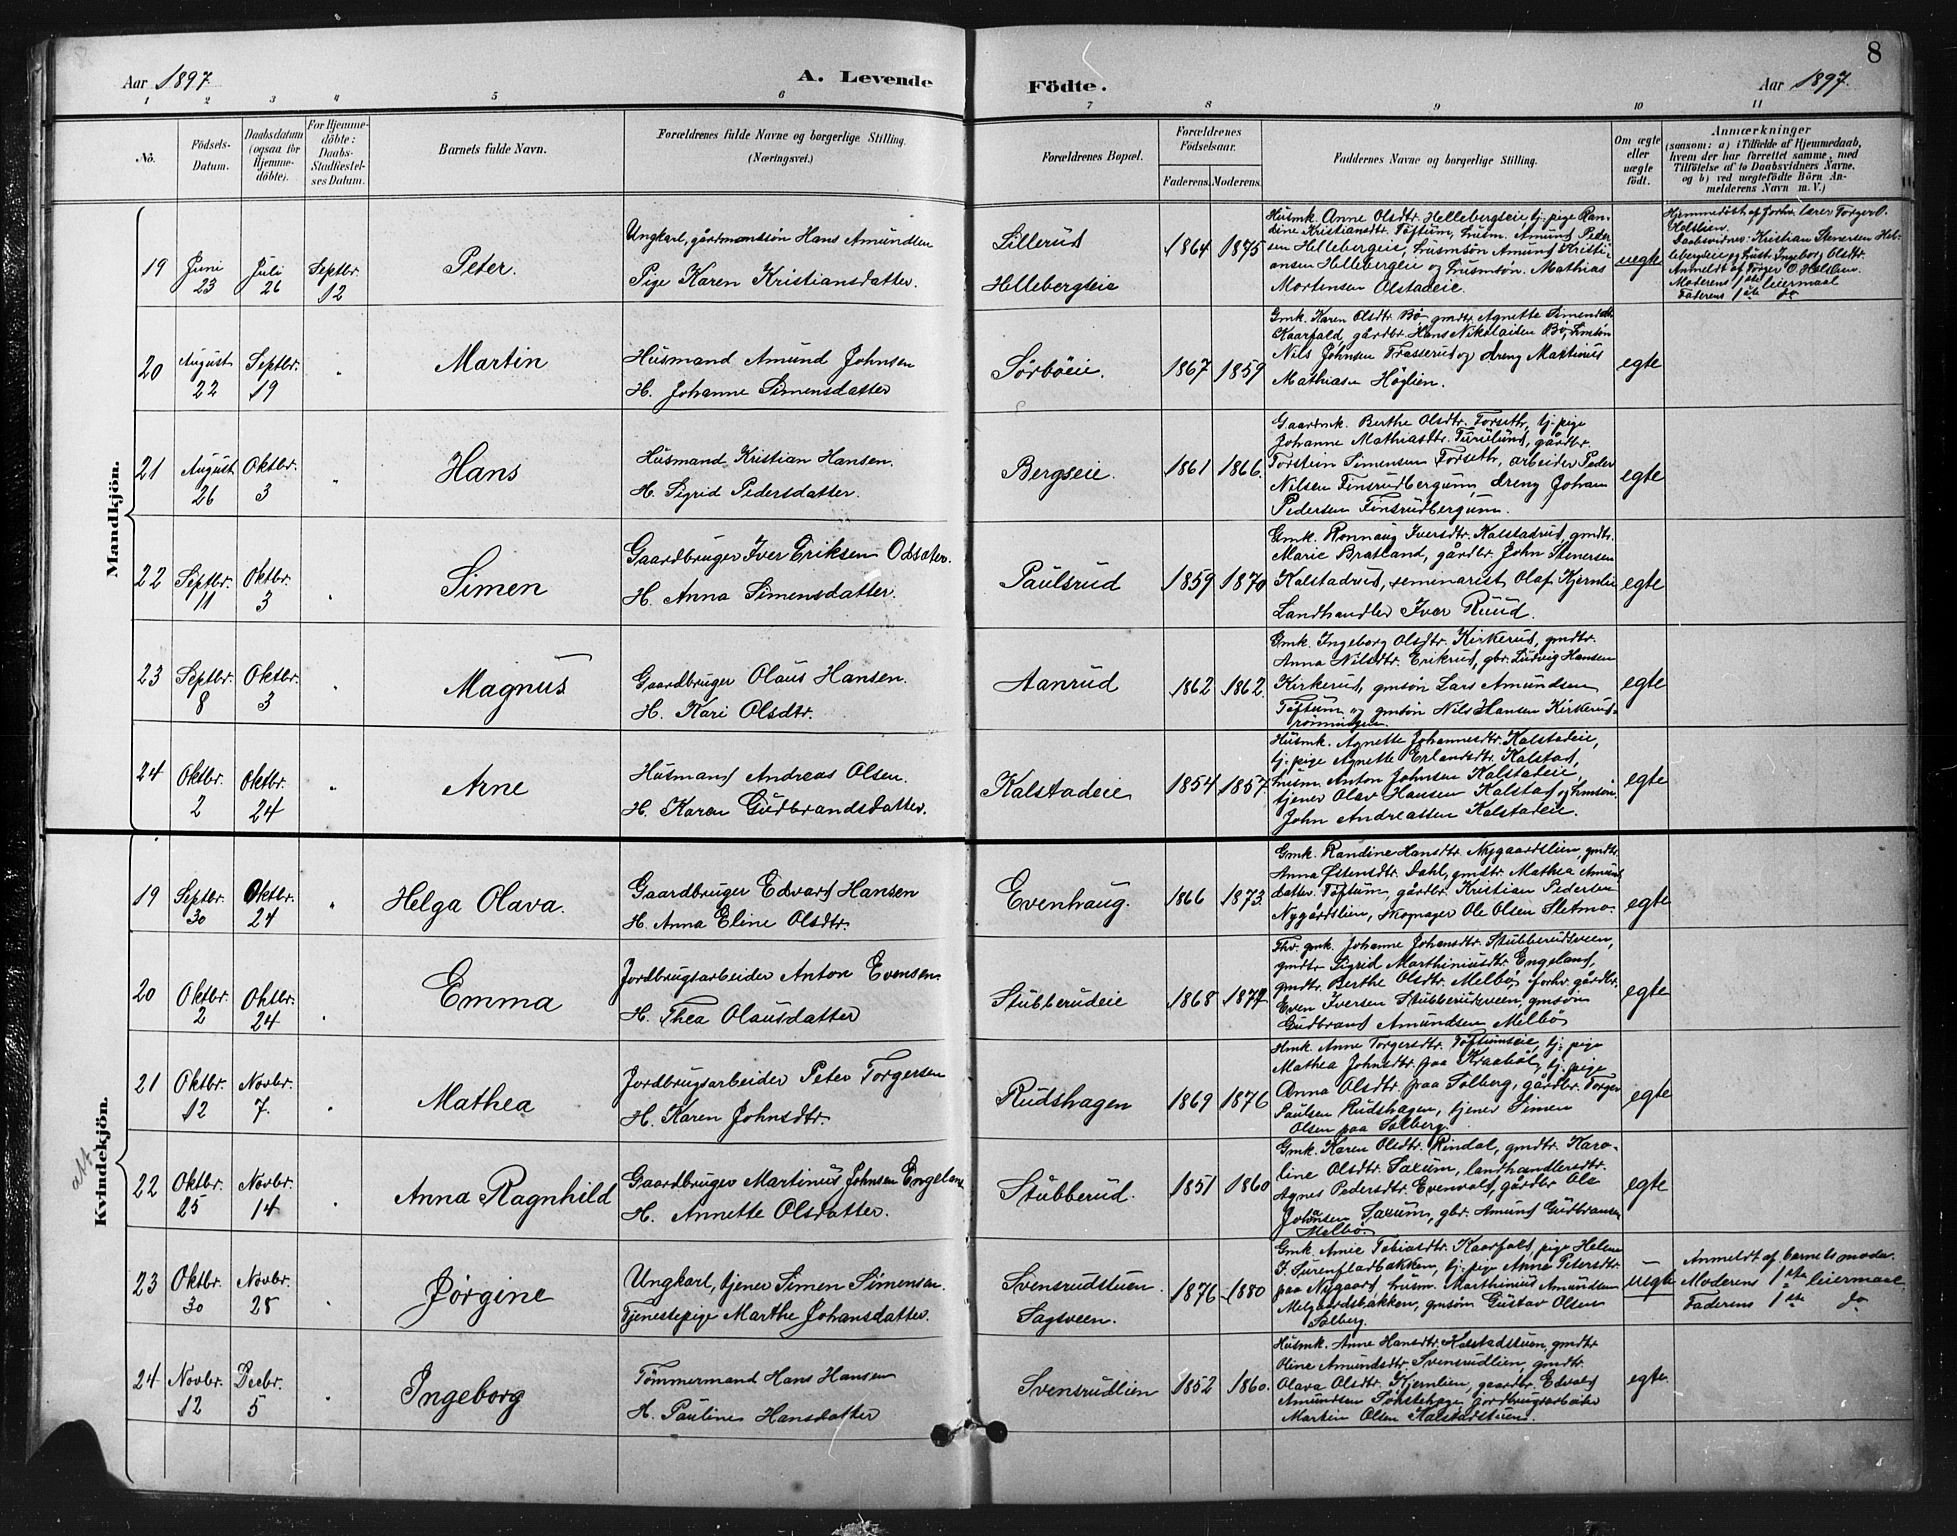 8
Aar 1897. A. Levende Födte. Aar 1897.
1 2 3 4 5 6 7 8 9 10 11
No.
Födsels-Datum.
Daabsdatum (ogsaa for Hjemmedöbte).
For Hjemmedöbte: Daabs-Stadfæstelses Datum.
Barnets fulde Navn.
Forældrenes fulde Navne og borgerlige Stilling.
(Næringsvei.)
Forældrenes Bopæl.
Forældrenes Födselsaar.
Faderens. Moderens.
Faddernes Navne og borgerlige Stilling.
Om ægte eller uægte födt.
Anmærkninger
(saasom: a) i Tilfælde af Hjemmedaab, hvem der har forrettet samme, med Tilföielse af to Daabsvidners Navne, og b) ved uægtefödte Börn Anmelderens Navn m. V.)
Mandkjön.
19 Juni 23 Juli 26 Septbr. 12 Peter.
Ungkarl, gårdmandssön Hans Amundsen
Pige Karen Kristiansdatter.
Lillerud
Hellebergseie
1864 1875
Husmk. Anne Olsdtr. Hellebergseie, tj: pige Ran-
dine Kristiansdtr. Töftum, husm. Amund Peder-
sen Hellebergeie, husmsön Amund Kristi-
ansen Hellebergeie og husmsön Mathias
Mortensen Olstadeie.
uegte
Hjemmedöbt af forhv. lærer Torger O.
Holstien.
Daabsvidner: Kristian Stenersen Hel-
lebergseie og hust. Ingeborg Olsdtr.
Anmeldt af Torger O. Holstien.
Moderens 1ste leiermaal
Faderens 1ste do
20 August 22 Septbr. 19 " Martin
Husmand Amund Johnsen
H. Johanne Simensdatter
Sörböeie.
1867 1859
Gmk. Karen Olsdtr. Bö, gmdtr. Agnette Simensdtr.
Kaarfald, gårdbr. Hans Nikolaisen Bö, hmsön
Nils Johnsen Frasserud og dreng Martinus
Mathiasen Höglien.
egte
21 August 26 Oktbr. 3 " Hans
Husmand Kristian Hansen.
H. Sigrid Pedersdatter.
Bergseie.
1861 1866.
Gaardmk. Berthe Olsdtr. Forseth, tj: pige
Johanne Mathiasdtr. Furulund, gårdbr.
Torstein Simensen Forseth, arbeider Peder
Nilsen Finsrudbergum, dreng Johan
Pedersen Finsrudbergum.
egte
22 Septbr. 11 Oktbr. 3 " Simen
Gaardbruger Iver Eriksen Odsater.
H. Anna Simensdatter.
Paulsrud
1859 1870
Gmk. Rönnaug Iversdtr. Kalstadrud, gmdtr.
Marie Bratland, gårdbr. John Stenersen
Kalstadrud, seminarist Olaf Kjernlie
Landhandler Ivar Ruud.
egte
23 Septbr. 8 Oktbr. 3 " Magnus
Gaardbruger Olaus Hansen.
H. Kari Olsdtr.
Aanrud
1862 1862.
Gmk. Ingeborg Olsdtr. Kirkerud, gmdtr.
Anna Nilsdtr. Erikrud, gbr. Ludvig Hansen
Kirkerud, gmsön Lars Amundsen
Töftum og gmsön Nils Hansen Kirkerud-
rönningen.
egte
24 Oktbr. 2 Oktbr. 24 " Arne
Husmand Andreas Olsen.
H. Karen Gudbrandsdatter.
Kalstadeie
1854 1857.
Husmk. Agnette Johannesdtr. Kalstadeie,
tj: pige Agnette Erlandsdtr. Kalstad,
husm. Anton Johnsen Kalstadeie,
tjener Olav Hansen Kalstad og hmsön.
John Andreassen Kalstadeie.
egte
Kvindekjön.
19 Septbr. 30 Oktbr. 24 " Helga Olava.
Gaardbruger Edvard Hansen
H. Anna Eline Olsdtr.
Evenhaug.
1866 1873.
Gmk. Randine Hansdtr. Nygaardslien, gmdtr.
Anna Østensdtr. Dahl, gmdtr. Mathea Amunds-
datter Töftum, gårdbr. Kristian Pedersen
Nygårdslien, skomager Ole Olsen Sletmo.
egte
20 Oktbr. 2 Oktbr. 24 " Emma
Jordbrugsarbeider Anton Evensen
H. Thea Olausdatter
Stubberudeie
1868 1874
Fhv. gmk. Johanne Johansdtr. Stubberudsveen,
gmdtr. Sigrid Marthiniusdtr. Engeland,
gmdtr. Berthe Olsdtr. Melbö, forhv. gårdbr.
Even Iversen Stubberudsveen, gmsön
Gudbrand Amundsen Melbö
egte
21 Oktbr. 12 Novbr. 7. " Mathea
Jordbrugsarbeider Peter Torgersen
H. Karen Johnsdtr.
Rudshagen
1869 1876
Hmk. Anne Torgersdtr. Töftumseie, tj: pige
Mathea Johnsdtr. paa Kraaböl, tj: pige
Anna Olsdtr. paa Solberg, gårdbr. Torger
Paulsen Rudshagen, tjener Simen
Olsen paa Solberg.
egte
22 Oktbr. 25 Novbr. 14 " Anna Ragnhild
Gaardbruger Martinus Johnsen Engeland
H. Annette Olsdatter.
Stubberud.
1851 1860
Gmk. Karen Olsdtr. Rindal, gmdtr. Karo-
line Olsdtr. Saxum, landhandlersdtr.
Agnes Pedersdtr. Evenvold, gårdbr. Ole
Johansen Saxum, gbr. Amund Gudbransen
Melbö.
egte
23 Oktbr. 30 Novbr. 28 " Jörgine
Ungkarl, tjener Simen Simensen.
Tjenestepige Marthe Johansdatter.
Svensrudstuen
Sagsveen.
1876 1880
Gmk. Anne Tobiasdtr. Kaarfald, pige Helene
J. Surenfladbakken, tj: pige Anna Petersdtr.
paa Nygaard, husm. Marthinius Amundsen
Melgaardsbakken, gmsön Gustav Olsen
Solberg.
uegte
Anmeldt af barnets moder.
Moderens 1ste leiermaal
Faderens 1ste do
24 Novbr. 12 Decbr. 5 " Ingeborg
Tömmermand Hans Hansen
H. Pauline Hansdatter
Svensrudlien
1852 1860.
Husmk. Anne Hansdtr. Kalstadstuen, gmdtr.
Oline Amundsdtr. Svensrudlien, gmdtr.
Olava Olsdtr. Kjernlien, gaardbr. Edvard
Amundsen, jordbrugsarbeider
Martin Olsen Kalstadstuen.
egte.